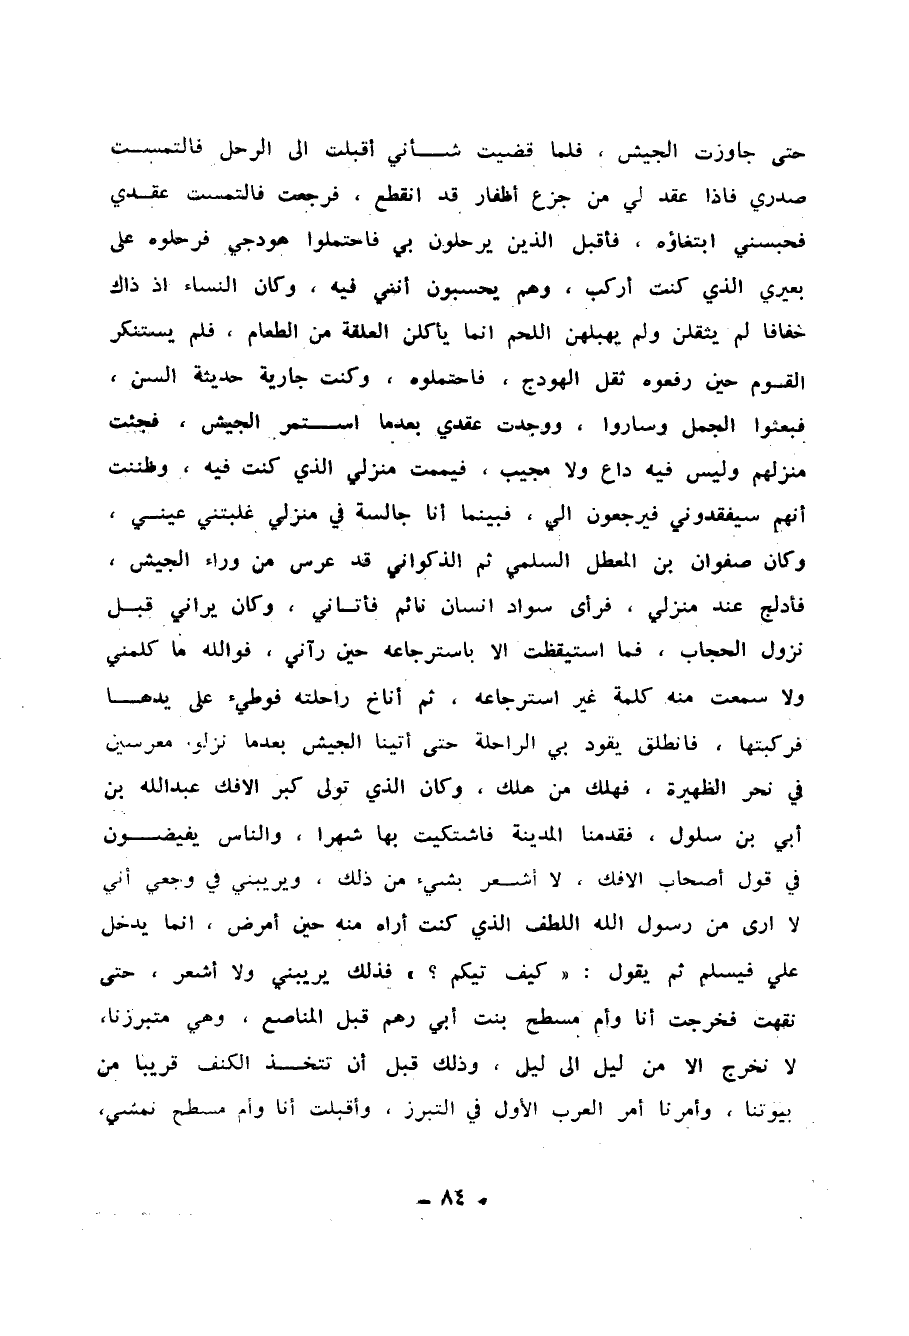 حتى جاوزت الجيش ، فلما قضيت شأني أقبلت الى الرحل فالتمست
صدري فاذا عقد لي من جزع أظفار قد انقطع ، فرجعت فالتمست عقدي
فحبسني ابتغاؤه ، فأقبل الذين يرحلون بي فاحتملوا هودجي فرحلوه على
بعيري الذي كنت أركب ، وهم يحسبون أنني فيه ، وكان النساء اذ ذاك
خفافا لم يثقلن ولم يهبلهن اللحم انما يأكلن العلقة من الطعام ، فلم يستنكر
القوم حين رفعوه ثقل الهودج ، فاحتملوه ، وكنت جارية حديثة السن ،
فبعثوا الجمل وساروا ، ووجدت عقدي بعدما استمر الجيش ، فجئت
منزلهم وليس فيه داع ولا مجيب ، فيممت منزلي الذي كنت فيه ، وظننت
أنهم سيفقدوني فيرجعون الي ، فبينما أنا جالسة في منزلي غلبتني عيني ،
وكان صفوان بن المعطل السلمي ثم الذكواني قد عرس من وراء الجيش ،
فأدلج عند منزلي ، فرأى سواد انسان نائم فأتاني ، وكان يراني قبل
نزول الحجاب ، فما استيقظت الا باسترجاعه حين رآني ، فوالله ما كلمني
ولا سمعت منه كلمة غير استرجاعه ، ثم أناخ راحلته فوطيء على يدها
فركبتها ، فانطلق يقود بي الراحلة حتى أتينا الجيش بعدما نزلو، معرسين
في نحر الظهيرة ، فهلك من هلك ، وكان الذي تولى كبر الافك عبدالله بن
أبي بن سلول ، فقدمنا المدينة فاشتكيت بها شهرا ، والناس يفيضون
في قول أصحاب الافك ، لا أشعر بشيء من ذلك ، ويريبني في وجعي أني
لا ارى من رسول الله اللطف الذي كنت أراه منه حين أمرض ، انما يدخل
علي فيسلم ثم يقول : « كيف تيكم ؟ » فذلك يريبني ولا أشعر ، حتى
نقهت فخرجت أنا وأم مسطح بنت أبي رهم قبل المناصع ، وهي متبرزنا،
لا نخرج الا من ليل الى ليل ، وذلك قبل أن تتخذ الكنف قريبا من
بيوتنا ، وأمرنا أمر العرب الأول في التبرز ، وأقبلت أنا وأم مسطح نمشي،
- ٨٤ -